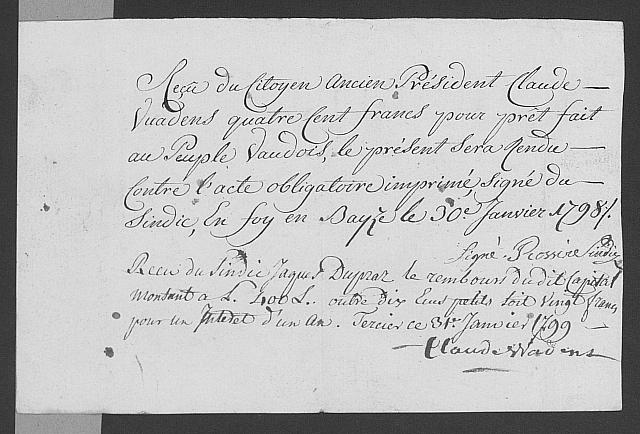 Reçu du Citoyen Ancien Président Claude
Vuadens quatre Cent francs pour prêt fait
au Peuple Vaudois, le présent sera Rendu
Contre l'acte obligatoire imprimé, signé du
Sindic, En foy en le 30e Janvier 1798./.
Signé Sindic
Receu du Sindic Jaques Dupraz le rembours du dit Capital
montant a L. 400 L. outre dix Ecus petits soit vingt francs
pour un Interet d'un An. Tercier ce 31e Janvier 1799
Claude Vuadens